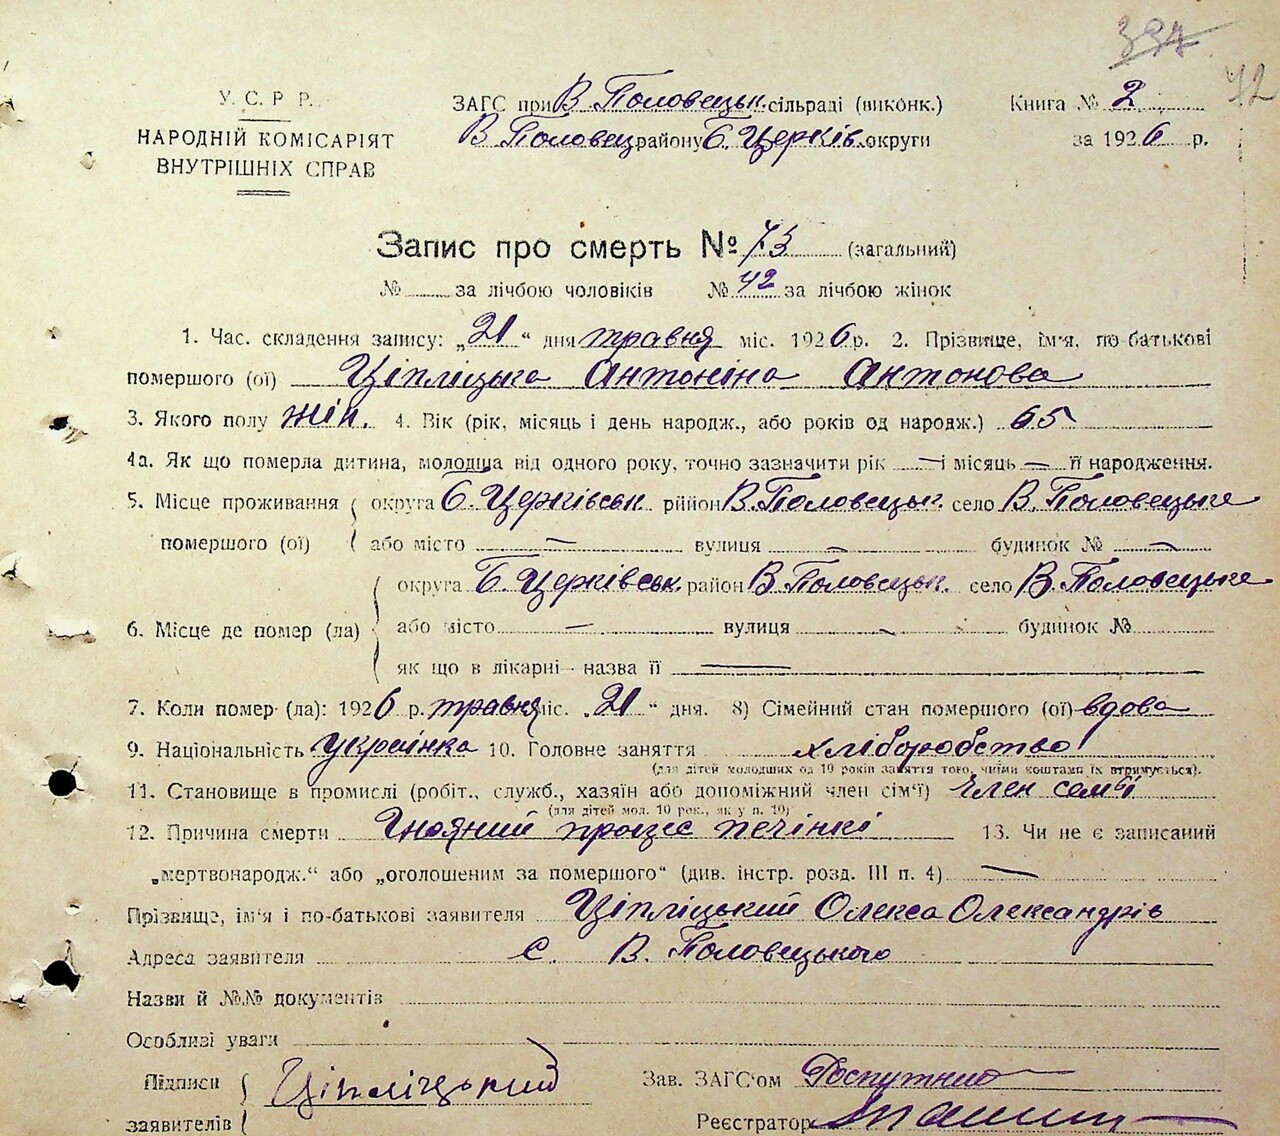 397
42
У. С. Р Р.
НАРОДНІЙ КОМІСАРІЯТ
ВНУТРІШНІХ СПРАВ
ЗАГС при В. Половецьк. сільраді (виконк.)
В. Половец. району Б. Церків. округи
Книга № 2
за 1926 р.
Запис про смерть № 73 (загальний)
№ за лічбою чоловіків № 42 за лічбою жінок
1. Час складення запису: „21“ дня травня міс. 1926 р. 2. Прізвище, ім'я, по-батькові
помершого (ої) Ціпліцька Антоніна Антонова
3. Якого полу жін. 4. Вік (рік, місяць і день народж., або років од народж.) 65
4а. Як що померла дитина, молодша від одного року, точно зазначити рік — і місяць — її народження.
5. Місце проживання округа Б. Церківськ. район В. Половецьк. село В. Половецьке
помершого (ої) або місто — вулиця — будинок № —
округа Б. Церківськ. район В. Половецьк. село В. Половецьке
6. Місце де помер (ла) або місто — вулиця — будинок №
як що в лікарні - назва її —
7. Коли помер (ла): 1926 р. травня міс. „21“ дня. 8) Сімейний стан помершого (ої) вдова
9. Національність українка 10. Головне заняття хліборобство
(для дітей молодших од 10 років заняття того, чиїми коштами їх втримується).
11. Становище в промислі (робіт., служб., хазяїн або допоміжний член сім'ї) член сем'ї
(для дітей мол. 10 рок., як у п. 10)
12. Причина смерти Гнояний процес печінкі 13. Чи не є записаний
„мертвонародж.“ або „оголошеним за помершого“ (див. інстр. розд. III п. 4) —
Прізвище, ім'я і по-батькові заявителя Ціпліцький Олекса Олександрів
Адреса заявителя с. В. Половецького
Назви й №№ документів
Особливі уваги
Підписи заявителів Ціпліцький
Зав. ЗАГС'ом
Реєстратор